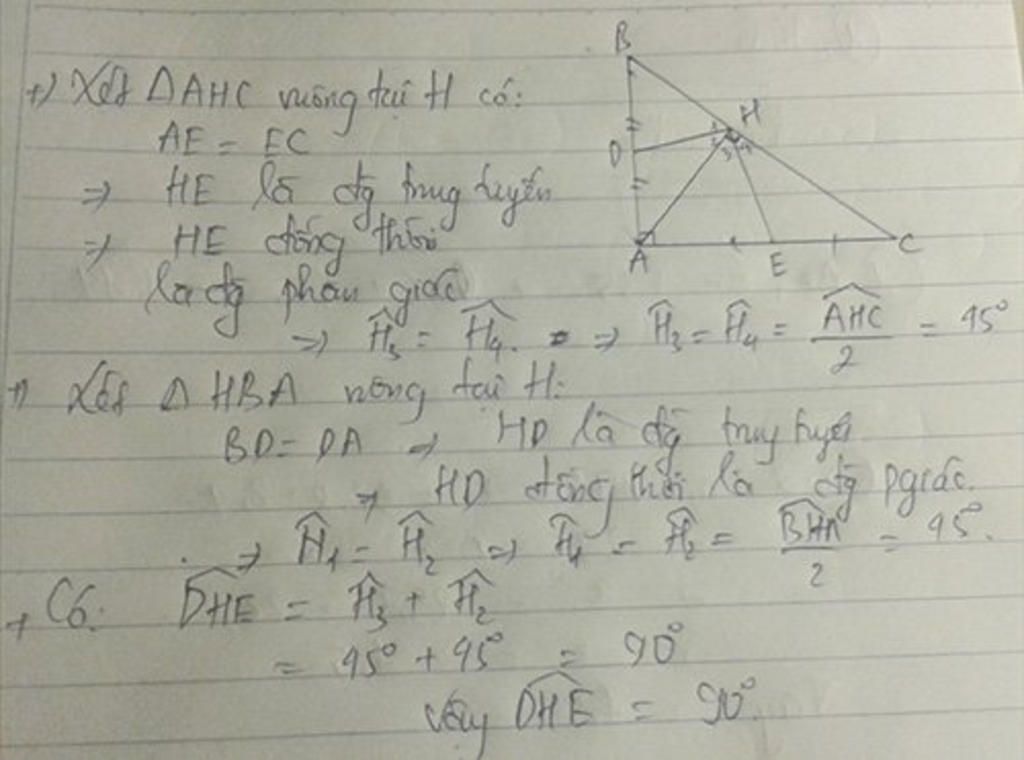 +) Xét ΔAHC vuông tại H có:
AE = EC
⇒ HE là đg trung tuyến
⇒ HE đồng thời
là đg phân giác
⇒ Ĥ₃ = Ĥ₄. ⇒ Ĥ₃ = Ĥ₄ = \frac{\widehat{AHC}}{2} = 45°
+) Xét Δ HBA vuông tại H:
BD = DA ⇒ HD là đg trung tuyến
⇒ HD đồng thời là đg pgiác.
⇒ Ĥ₁ = Ĥ₂ ⇒ Ĥ₁ = Ĥ₂ = \frac{\widehat{BHA}}{2} = 45°.
+ Có: \widehat{DHE} = Ĥ₃ + Ĥ₂
= 45° + 45° = 90°
Vậy \widehat{DHE} = 90°.
B
H
D
1 2 3 4
A
E
C